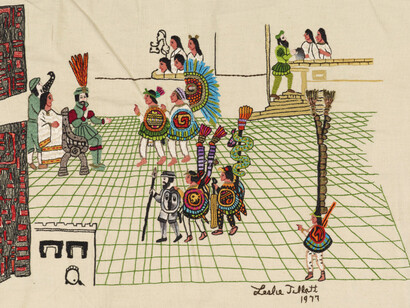 Leslie Tillett
1977